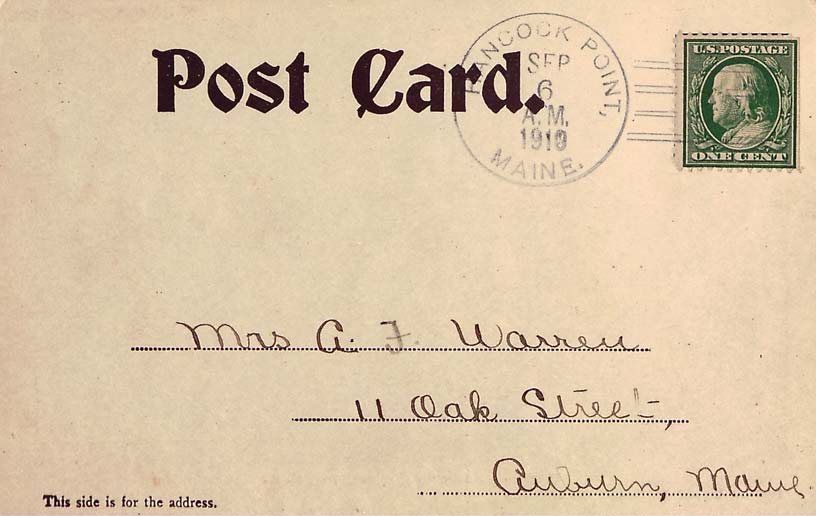 Post Card.
HANCOCK POINT,
SEP
6
A.M.
MAINE.
U.S. POSTAGE
ONE CENT
Mrs A. F. Warren
11 Oak Street,
Auburn, Maine
This side is for the address.